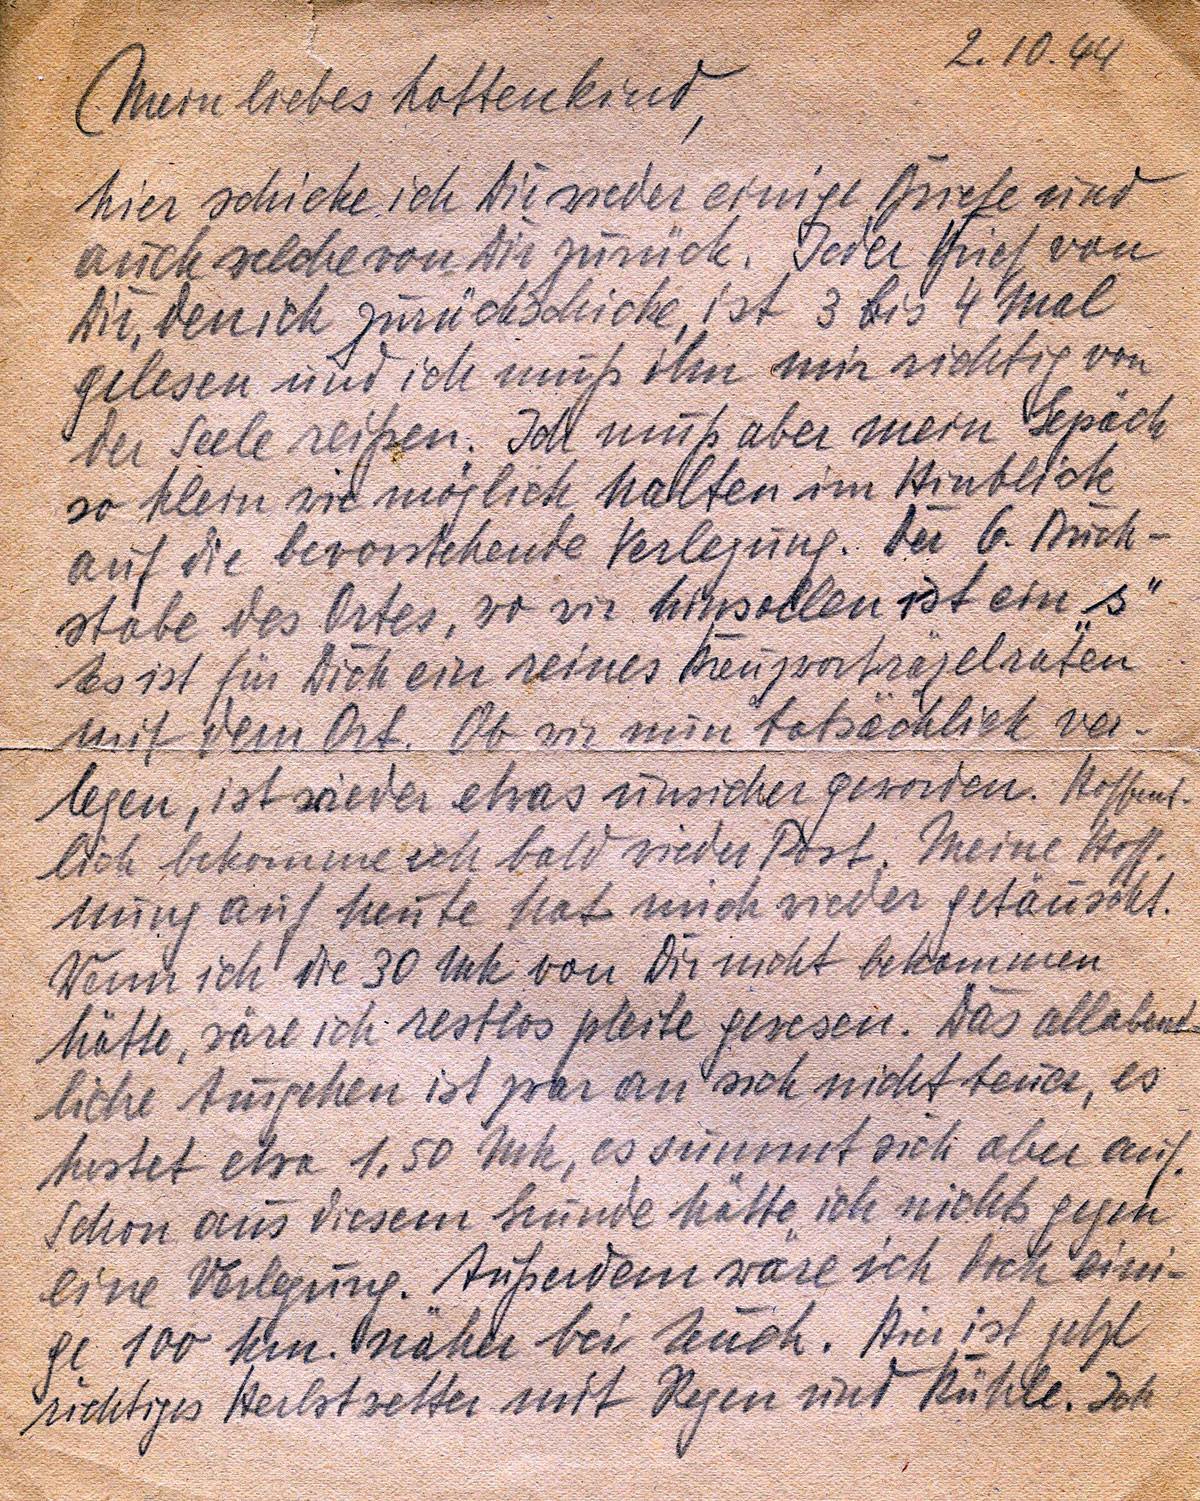 2.10.44
Mein liebes Lottenkind,
hier schicke ich Dir wieder einige Briefe und
auch welche von Dir zurück. Jeder Brief von
Dir, den ich zurückschicke, ist 3 bis 4 Mal
gelesen und ich muß ihn mir richtig von
der Seele reißen. Ich muß aber mein Gepäck
so klein wie möglich halten im Hinblick
auf die bevorstehende Verlegung. Der 6. Buch-
stabe des Ortes, wo wir hinsollen ist ein „s"
Es ist für Dich ein reines Kreuzworträtzelraten
mit dem Ort. Ob wir nun tatsächlich ver-
legen, ist wieder etwas unsicher geworden. Hoffent-
lich bekomme ich bald wieder Post. Meine Hoff-
nung auf heute hat mich wieder getäuscht.
Wenn ich die 30 Mk von Dir nicht bekommen
hätte, wäre ich restlos pleite gewesen. Das allabend-
liche Ausgehen ist zwar an sich nicht teuer, es
kostet etwa 1,50 Mk, es summt sich aber auf.
Schon aus diesem Grunde hätte ich nichts gegen
eine Verlegung. Außerdem wäre ich doch eini-
ge 100 km. näher bei Euch. Hier ist jetzt
richtiges Herbstwetter mit Regen und Kühle. Ich